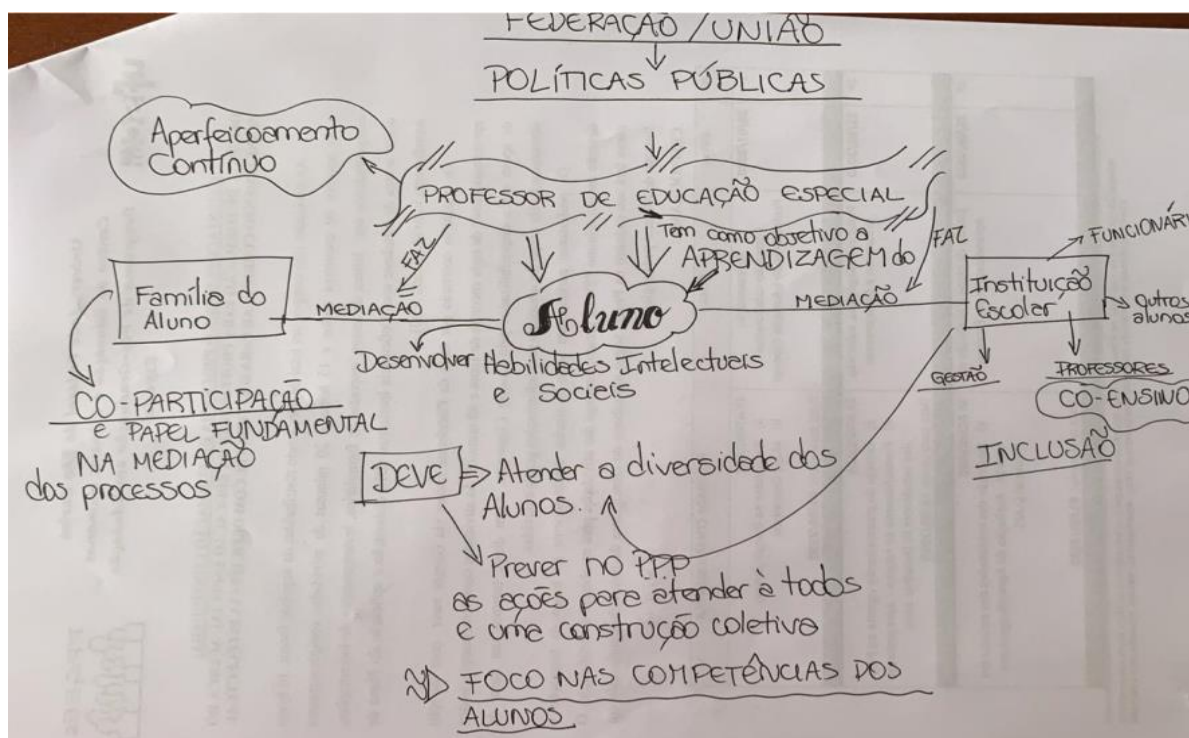 FEDERAÇÃO/UNIÃO
POLÍTICAS PÚBLICAS
Aperfeicoamento
Contínuo
PROFESSOR DE EDUCAÇÃO ESPECIAL
FAZ
Tem como objetivo a
APRENDIZAGEM do
FAZ
Família do
Aluno
MEDIAÇÃO
Aluno
MEDIAÇÃO
Instituição
Escolar
FUNCIONÁRI
outros
alunos
Desenvolver Habilidades Intelectuais
e Sociais
GESTÃO
PROFESSORES
CO-ENSINO
INCLUSÃO
CO-PARTICIPAÇÃO
e PAPEL FUNDAMENTAL
NA MEDIAÇÃO
dos processos
DEVE
Atender a diversidade dos
Alunos.
Prever no PPP
as ações para atender à todos
e uma construção coletiva
FOCO NAS COMPETÊNCIAS DOS
ALUNOS